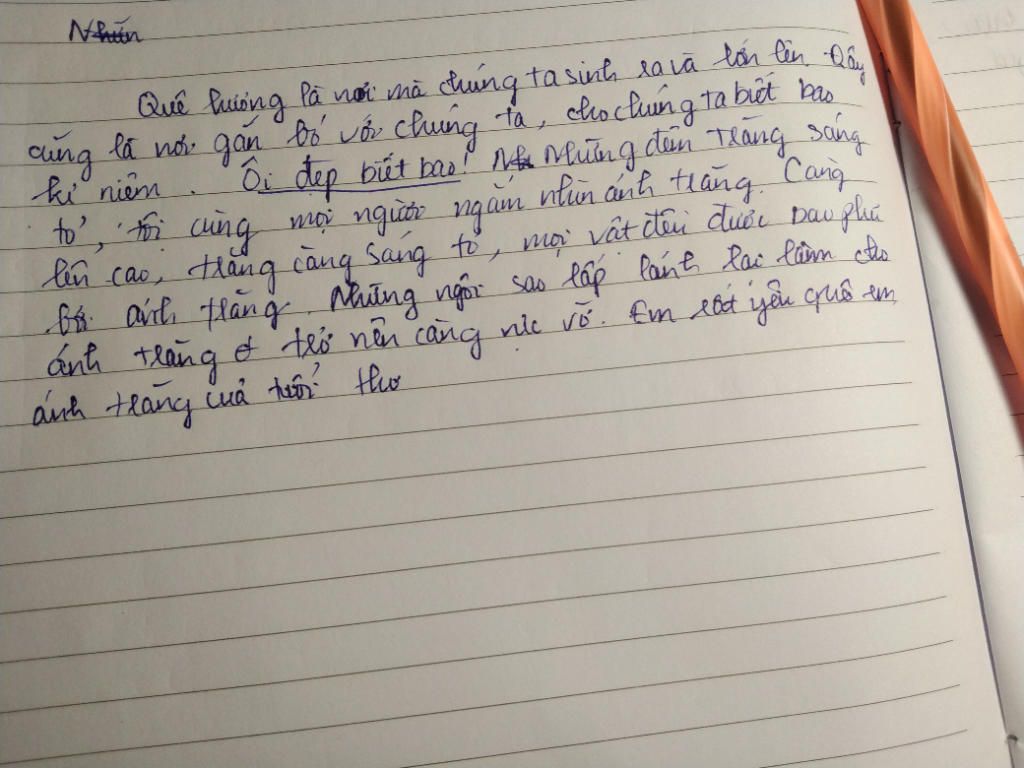 Nhún
Quê hương là nơi mà chúng ta sinh ra và lớn lên. Đây
cũng là nơi gắn bó với chúng ta, cho chúng ta biết bao
kỉ niệm. Ôi đẹp biết bao! Nh Những đêm trăng sáng
tỏ, tôi cùng mọi người ngắm nhìn ánh trăng. Càng
lên cao, trăng càng sáng tỏ, mọi vật đều được bao phủ
bởi ánh trăng. Những ngôi sao lấp lánh lại làm cho
ánh trăng trở nên càng rực rỡ. Em rất yêu quê em,
ánh trăng của tuổi thơ